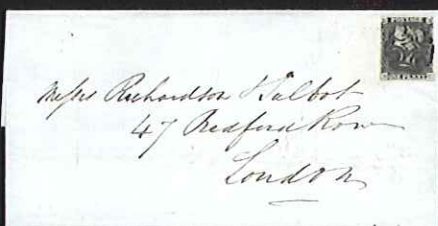 POSTAGE
Messrs Richardson & Talbot
47 Bedford Row
London